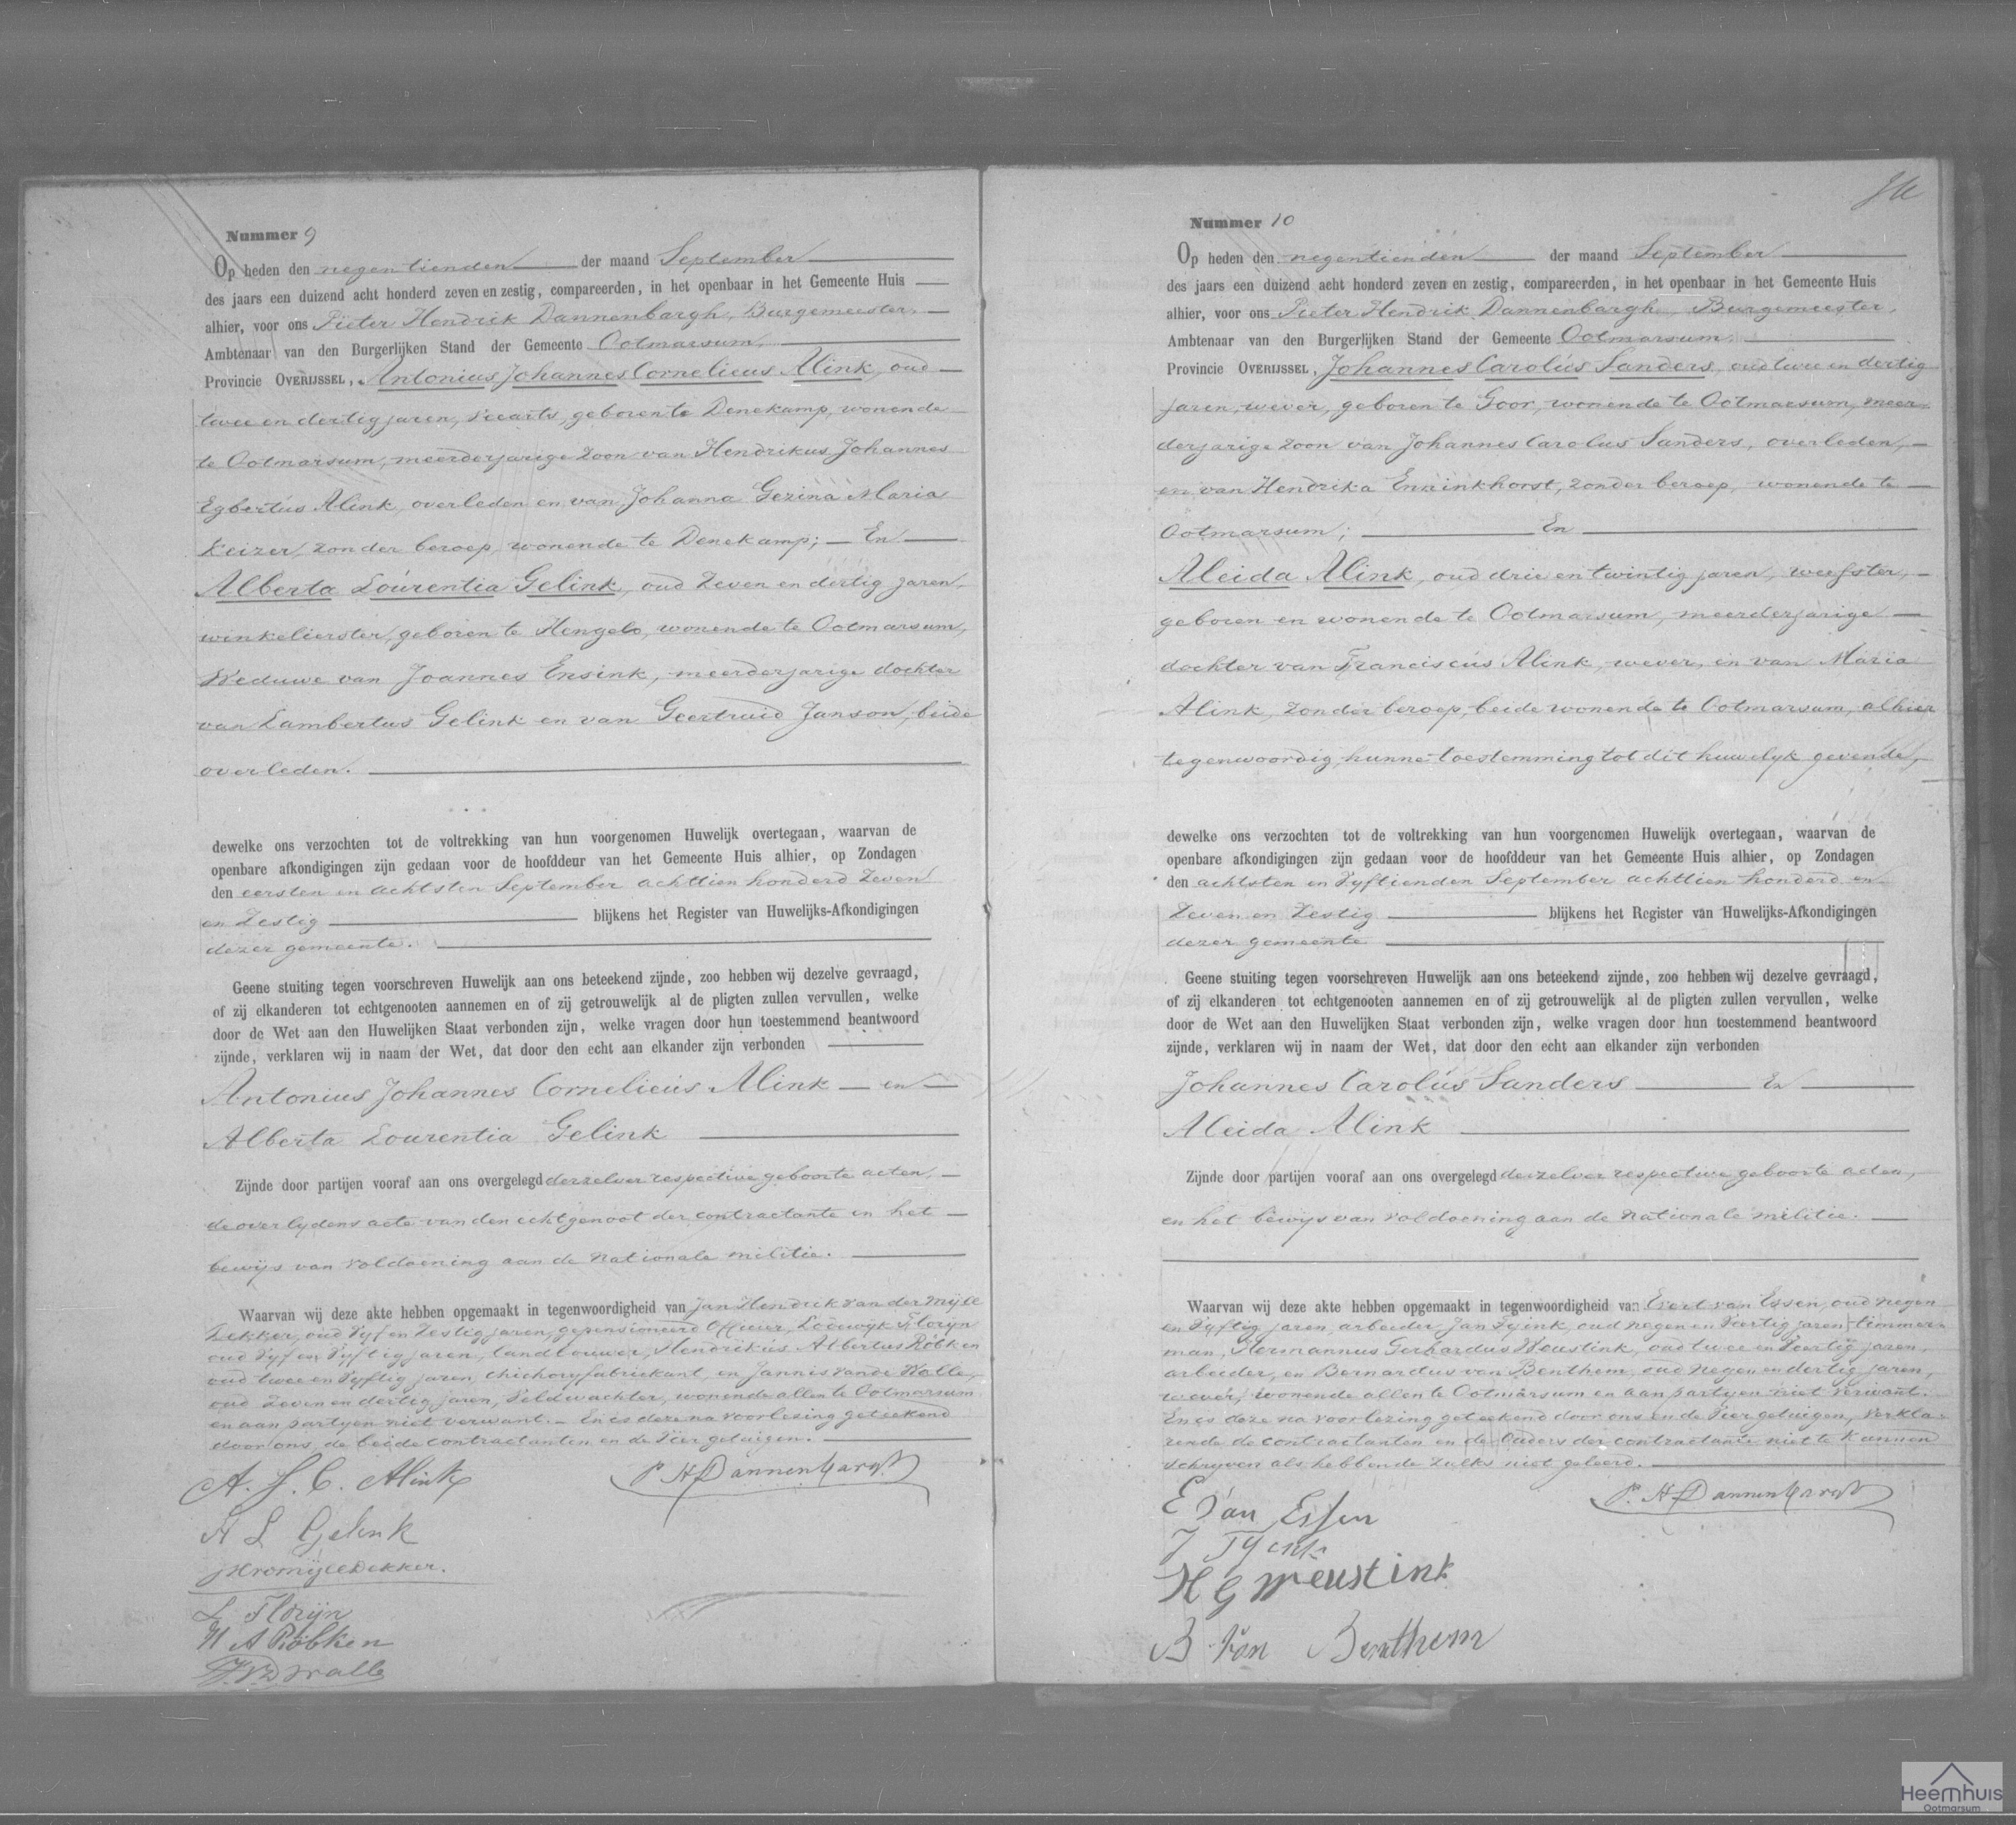 Nummer 9
Op heden den negentienden der maand September
des jaars een duizend acht honderd zeven en zestig, compareerden, in het openbaar in het Gemeente Huis
alhier, voor ons Pieter Hendrik Dannenbargh, Burgemeester,
Ambtenaar van den Burgerlijken Stand der Gemeente Ootmarsum,
Provincie OVERIJSSEL, Antonius Johannes Cornelieus Alink, oud
twee en dertig jaren, veearts, geboren te Denekamp, wonende
te Ootmarsum, meerderjarige zoon van Hendrikus Johannes
Egbertus Alink, overleden en van Johanna Gezina Maria
Keizer, zonder beroep, wonende te Denekamp; — En —
Alberta Lourentia Gelink, oud zeven en dertig jaren,
winkelierster, geboren te Hengelo, wonende te Ootmarsum,
Weduwe van Joannes Ensink, meerderjarige dochter
van Lambertus Gelink en van Geertruid Janson, beide
overleden.
dewelke ons verzochten tot de voltrekking van hun voorgenomen Huwelijk overtegaan, waarvan de
openbare afkondigingen zijn gedaan voor de hoofddeur van het Gemeente Huis alhier, op Zondagen
den eersten en achtsten September achttien honderd zeven
en zestig blijkens het Register van Huwelijks-Afkondigingen
dezer gemeente.
Geene stuiting tegen voorschreven Huwelijk aan ons beteekend zijnde, zoo hebben wij dezelve gevraagd,
of zij elkanderen tot echtgenooten aannemen en of zij getrouwelijk al de pligten zullen vervullen, welke
door de Wet aan den Huwelijken Staat verbonden zijn, welke vragen door hun toestemmend beantwoord
zijnde, verklaren wij in naam der Wet, dat door den echt aan elkander zijn verbonden
Antonius Johannes Cornelieus Alink — en —
Alberta Lourentia Gelink
Zijnde door partijen vooraf aan ons overgelegd derzelver respective geboorte acten,
de overlydens acte van den echtgenoot der contractante en het
bewijs van voldoening aan de nationale militie.
Waarvan wij deze akte hebben opgemaakt in tegenwoordigheid van Jan Hendrik van der Mijll
Dekker, oud vyf en zestig jaren, gepensioneerd Officier, Lodewyk Florijn
oud vyf en vyftig jaren, landbouwer, Hendrikus Albertus Röbken
oud twee en vyftig jaren, chichoryfabriekant, en Jannis van de Walle,
oud zeven en dertig jaren, veldwachter, wonende allen te Ootmarsum
en aan partyen niet verwant. — En is deze na voorlezing geteekend
door ons, de beide contractanten en de vier getuigen.
A. J. C. Alink
P H Dannenbargh
A L Gelink
JHvdMijllDekker.
L Florijn
H A Röbken
J. v D Walle
Nummer 10
Op heden den negentienden der maand September
des jaars een duizend acht honderd zeven en zestig, compareerden, in het openbaar in het Gemeente Huis
alhier, voor ons Pieter Hendrik Dannenbargh, Burgemeester,
Ambtenaar van den Burgerlijken Stand der Gemeente Ootmarsum,
Provincie OVERIJSSEL, Johannes Carolus Sanders, oud twee en dertig
jaren, wever, geboren te Goor, wonende te Ootmarsum, meer-
derjarige zoon van Johannes Carolus Sanders, overleden,
en van Hendrika Enninkhorst, zonder beroep, wonende te
Ootmarsum; En
Aleida Alink, oud drie en twintig jaren, weefster,
geboren en wonende te Ootmarsum, meerderjarige
dochter van Franciscus Alink, wever, en van Maria
Alink, zonder beroep, beide wonende te Ootmarsum, alhier
tegenwoordig, hunne toestemming tot dit huwelyk gevende,
dewelke ons verzochten tot de voltrekking van hun voorgenomen Huwelijk overtegaan, waarvan de
openbare afkondigingen zijn gedaan voor de hoofddeur van het Gemeente Huis alhier, op Zondagen
den achtsten en vyftienden September achttien honderd en
zeven en zestig blijkens het Register van Huwelijks-Afkondigingen
dezer gemeente
Geene stuiting tegen voorschreven Huwelijk aan ons beteekend zijnde, zoo hebben wij dezelve gevraagd,
of zij elkanderen tot echtgenooten aannemen en of zij getrouwelijk al de pligten zullen vervullen, welke
door de Wet aan den Huwelijken Staat verbonden zijn, welke vragen door hun toestemmend beantwoord
zijnde, verklaren wij in naam der Wet, dat door den echt aan elkander zijn verbonden
Johannes Carolus Sanders En
Aleida Alink
Zijnde door partijen vooraf aan ons overgelegd derzelver respective geboorte acten,
en het bewys van voldoening aan de nationale militie.
Waarvan wij deze akte hebben opgemaakt in tegenwoordigheid van Evert van Essen, oud negen
en vyftig jaren, arbeider, Jan Tyink, oud negen en veertig jaren, timmer-
man, Hermannus Gerhardus Weustink, oud twee en veertig jaren,
arbeider, en Bernardus van Benthem, oud negen en dertig jaren,
wever, wonende allen te Ootmarsum en aan partyen niet verwant.
En is deze na voorlezing geteekend door ons en de vier getuigen, verkla-
rende de contractanten en de Ouders der contractante niet te kunnen
schryven als hebbende zulks niet geleerd.
P. H Dannenbargh
E van Essen
J Tyink
H G Weustink
B. van Benthem
Heemhuis
Ootmarsum